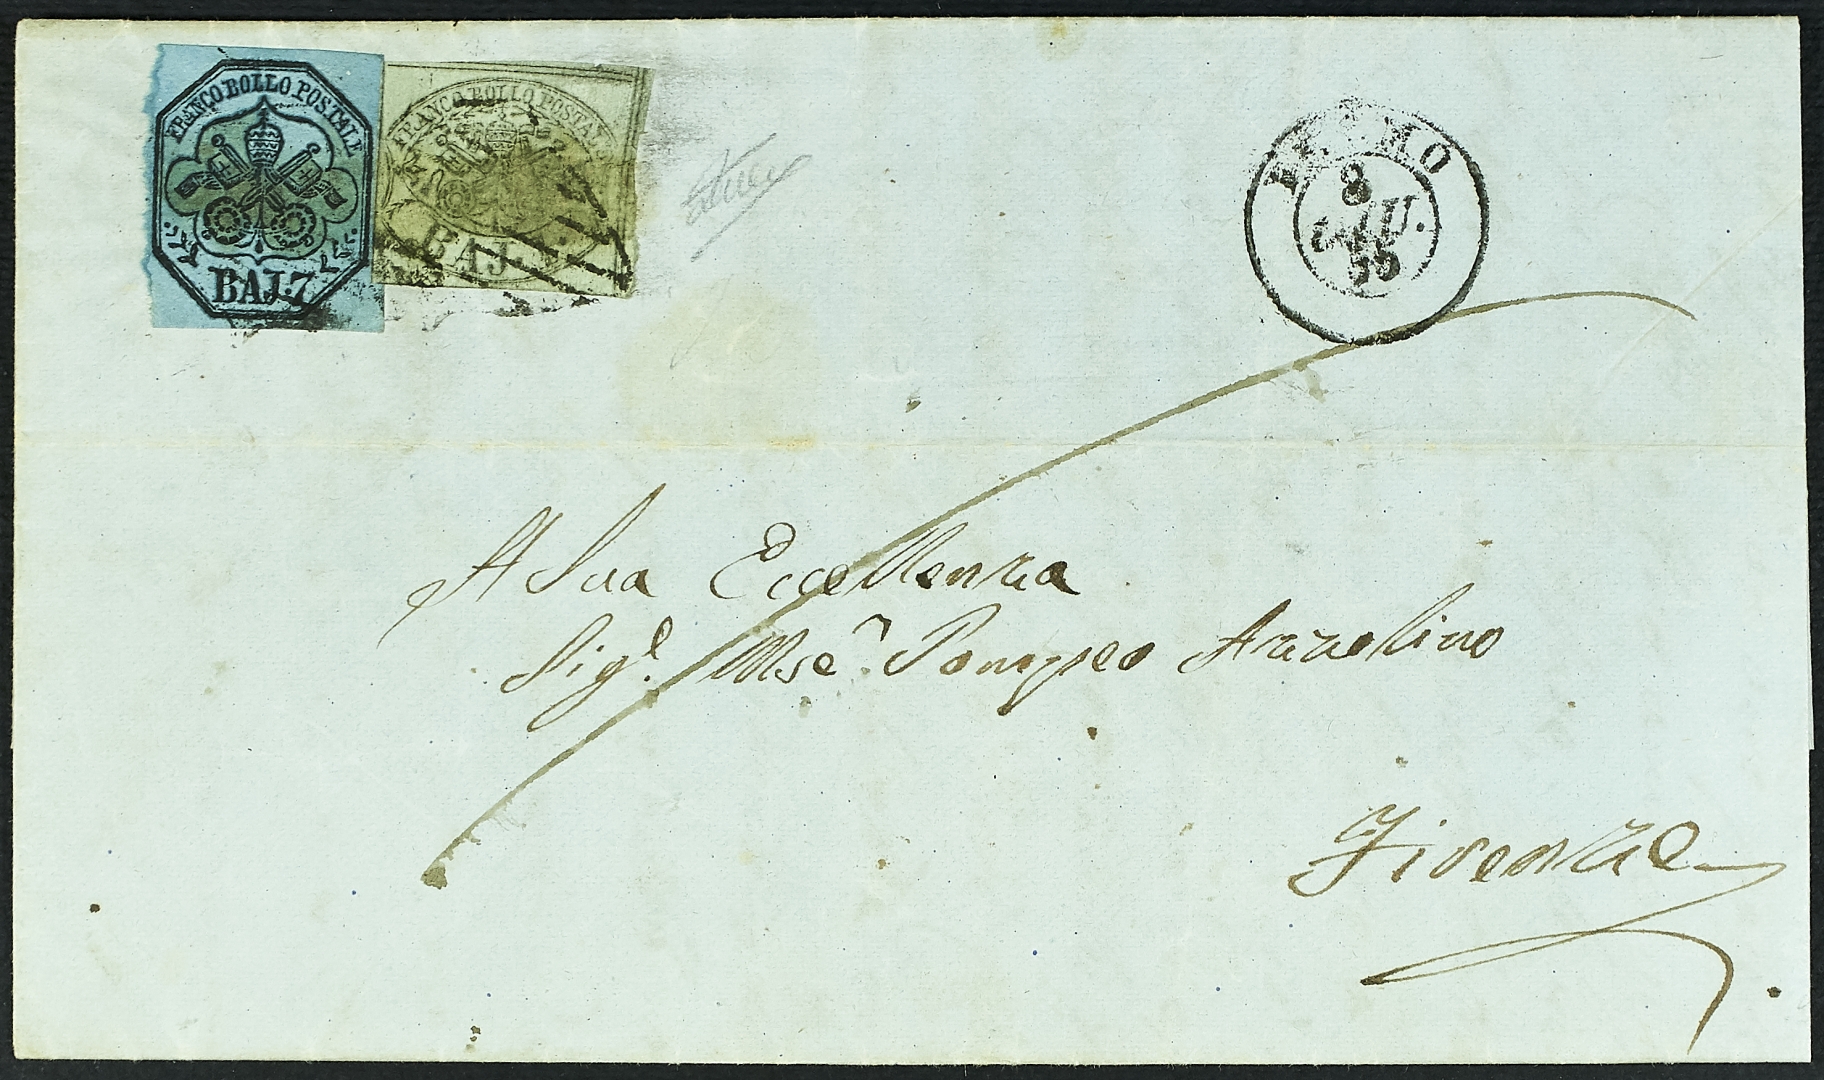 FRANCO BOLLO POSTALE
BAJ. 7
FRANCO BOLLO POSTALE
BAJ.
FERMO
8
GIU.
55
A Sua Eccellenza
Sig.r Mse Pompeo Azzolino
Firenze